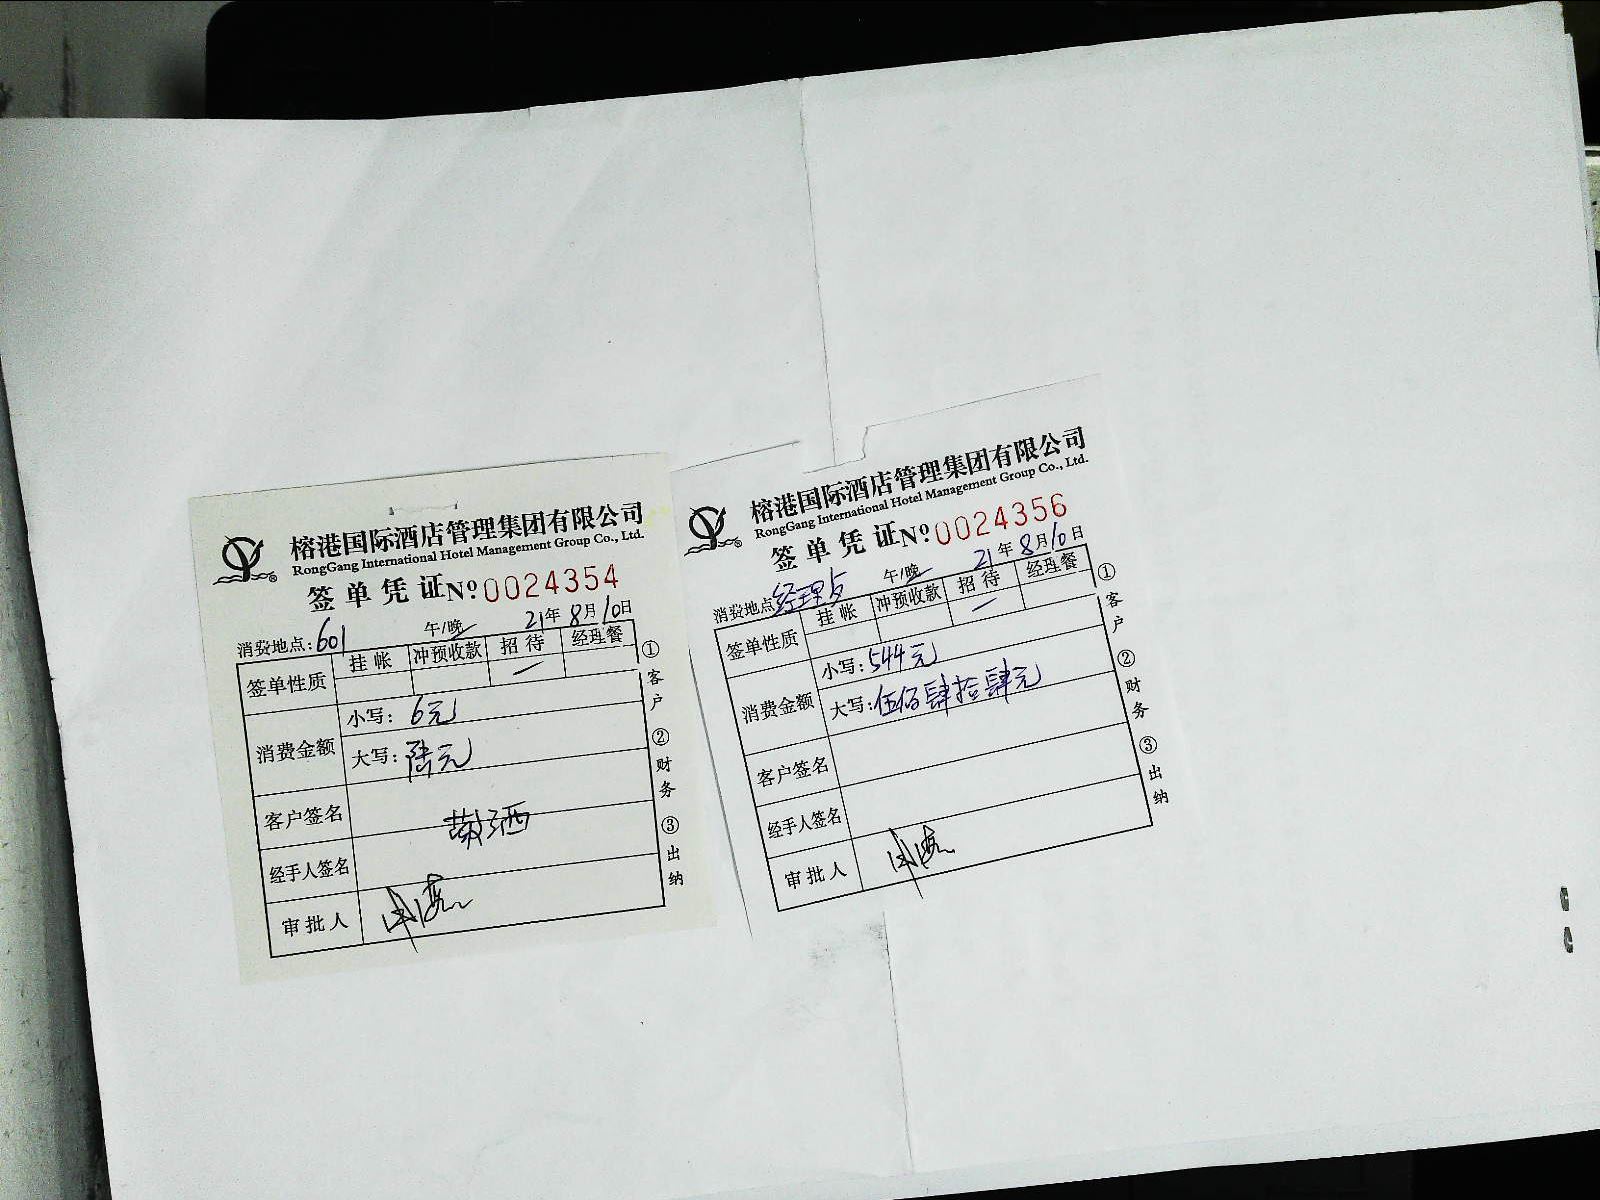 榕港国际酒店管理集团有限公司
RongGang International Hotel Management Group Co., Ltd.
签单凭证 Nº 0024354
21年8月10日
消费地点: 601 午/晚
签单性质 挂帐 冲预收款 招待 经理餐
消费金额 小写: 6元
大写: 陆元
客户签名
经手人签名
审批人
①客户 ②财务 ③出纳
榕港国际酒店管理集团有限公司
RongGang International Hotel Management Group Co., Ltd.
签单凭证 Nº 0024356
21年8月10日
消费地点 午/晚
签单性质 挂帐 冲预收款 招待 经理餐
消费金额 小写: 544元
大写: 伍佰肆拾肆元
客户签名
经手人签名
审批人
①客户 ②财务 ③出纳